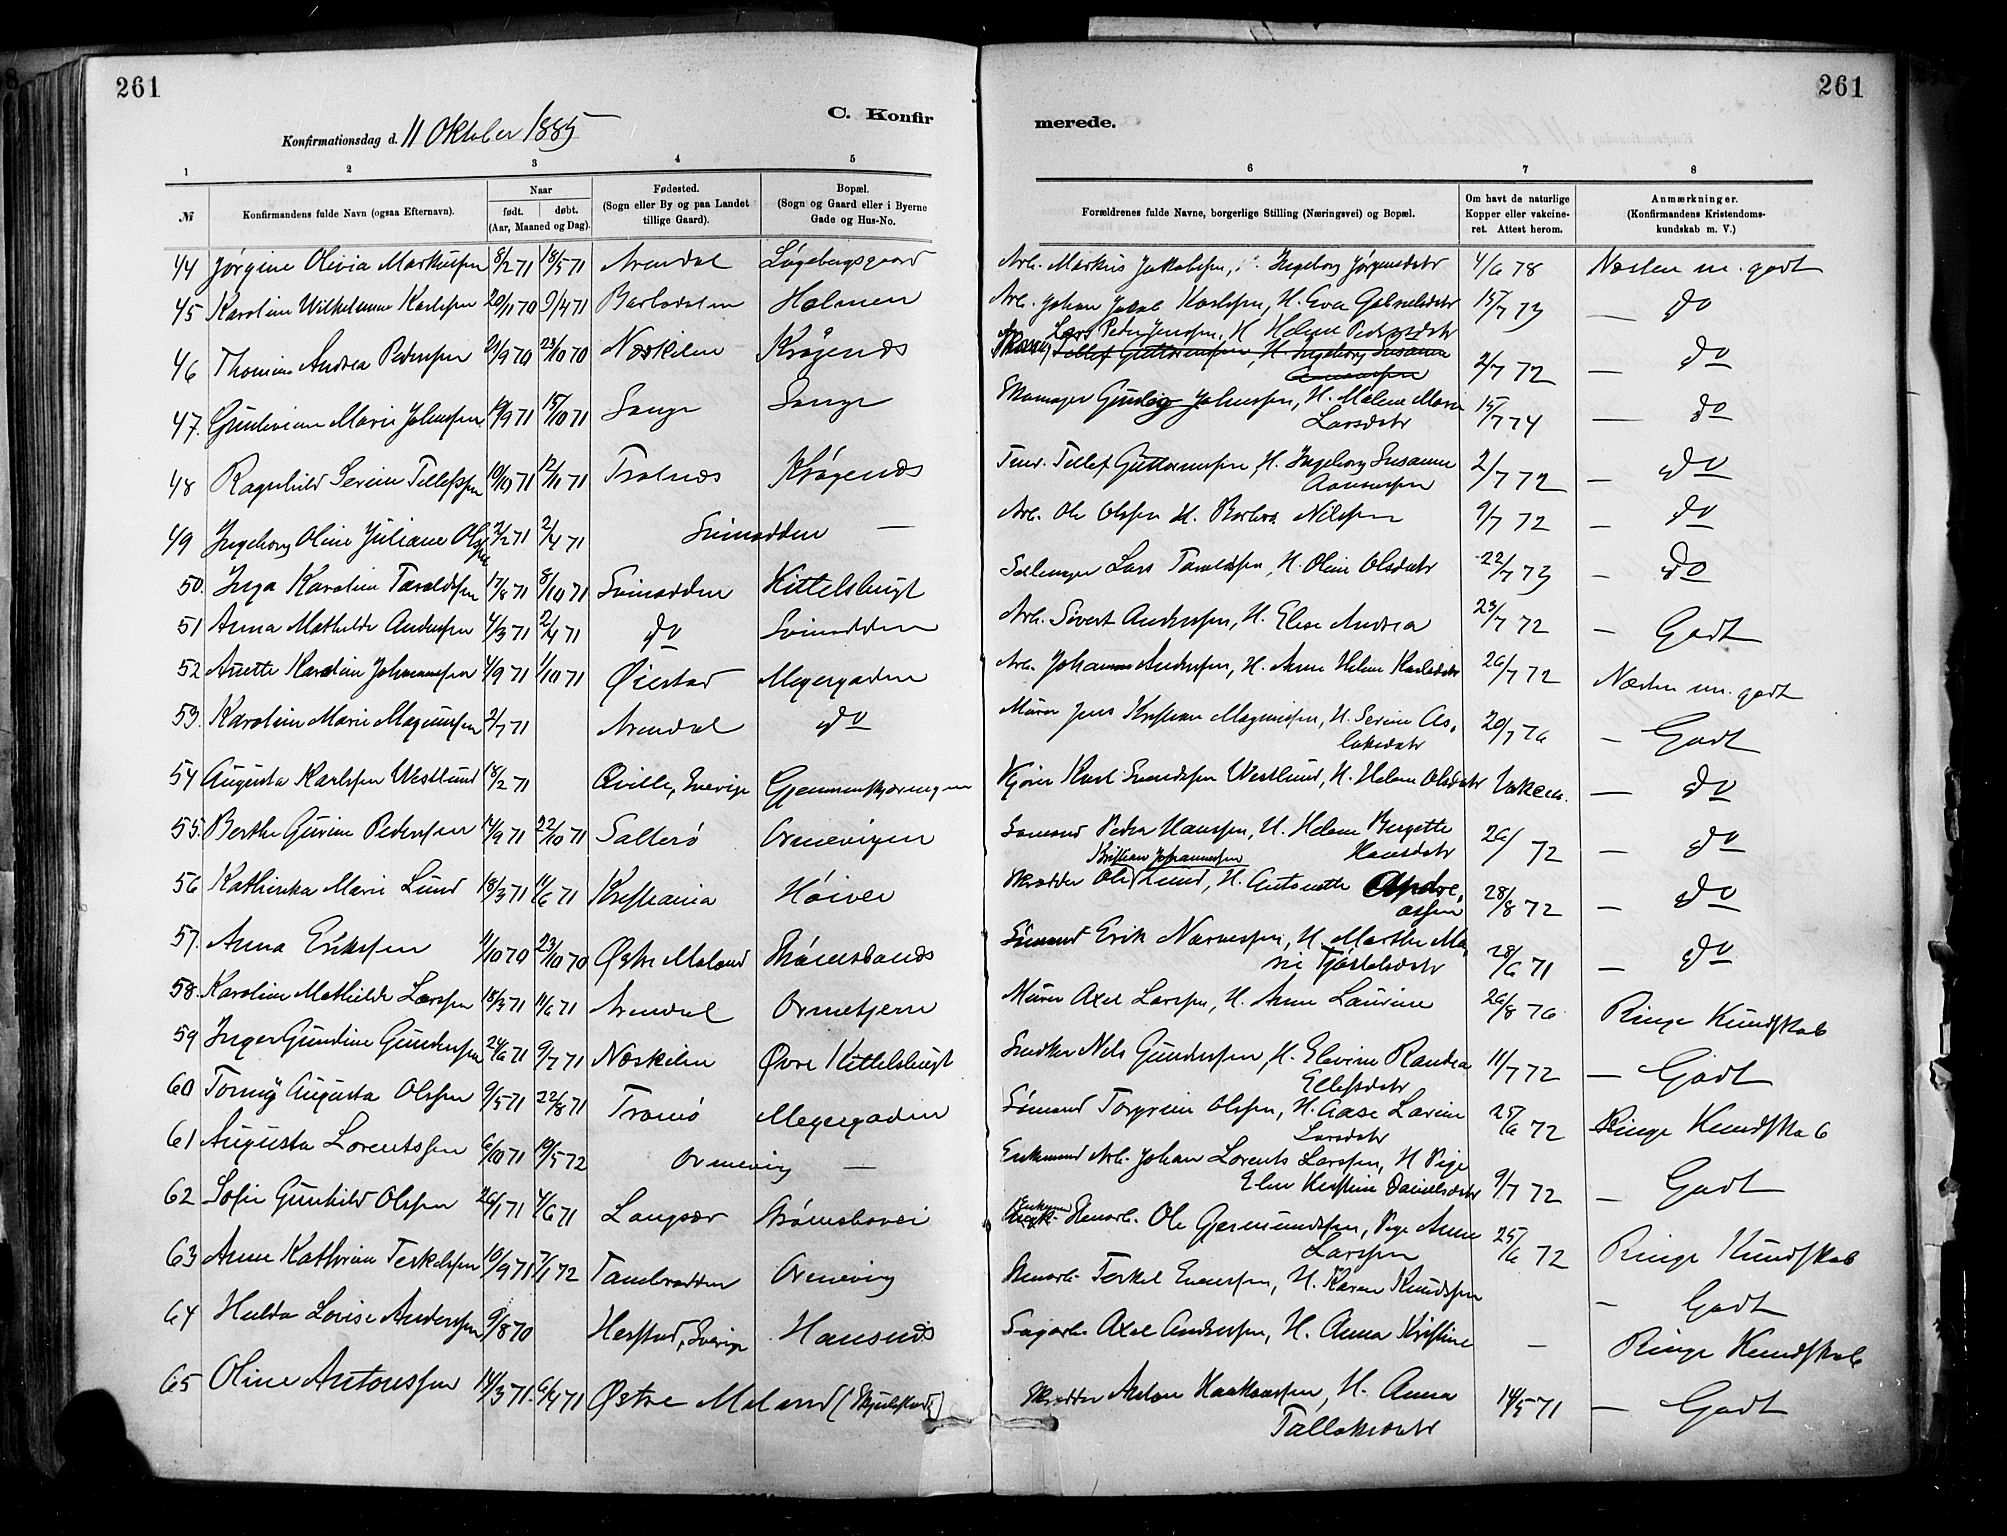 261
261
C. Konfir
merede.
Konfirmationsdag d. 11 Oktober 1885
1 2 3 4 5
6 7 8
№
Konfirmandens fulde Navn (ogsaa Efternavn).
Naar
født. døbt.
(Aar, Maaned og Dag).
Fødested.
(Sogn eller By og paa Landet
tillige Gaard).
Bopæl.
(Sogn og Gaard eller i Byerne
Gade og Hus-No.
Forældrenes fulde Navne, borgerlige Stilling (Næringsvei) og Bopæl.
Om havt de naturlige
Kopper eller vakcine-
ret. Attest herom.
Anmærkninger.
(Konfirmandens Kristendoms-
kundskab m. V.)
44 Jørgine Olivia Markussen 8/2 71 18/5 71 Arendal
Arb. Markus Jakobssen, Ingeborg Jørgensdatr 4/6 78 Næsten m. godt
45 Karoline Wilhelmine Karlssen 20/11 70 9/4 71 Barbodalen Holmen
Arb. Johan Jakob Karlssen, H. Eva Gabrielsdatr 15/7 73 — do
46 Thomine Andrea Pederssen 29/9 70 23/10 70 Næskilen Krøgenæs
Lars Peder Jenssen, H. Helene Pedersdatr
Tellef Guttormssen, H. Ingeborg Susanne
2/7 72 — do
47. Gundine Marie Johnssen 19/9 71 15/10 71 Songe Songe
Skomager Johnssen, H. Malene Marie
Larsdatr 15/7 74 — do
48 Ragnhild Serine Tellefssen 10/10 71 12/11 71 Tralnæs Krøgenæs
Tellef Guttormssen, H. Ingeborg Susanne
Aanonssen 2/7 72 — do
49 Ingeborg Oline Juliane Olssen 2/2 71 2/4 71 Svinodden —
Arb. Ole Olssen H. Barbra Nilssen 9/7 72 — do
50. Inga Karoline Taraldssen 17/8 71 8/10 71 Svinodden Kittelsbugt
Seilmager Lars Taraldssen, H. Oline Olsdatr 22/7 73 — do
51 Anna Mathilde Anderssen 4/3 71 2/4 71 do Svinodden
Arb. Sivert Anderssen, H. Elise Andrea 23/7 72 — Godt
52 Anette Karoline Johannessen 4/9 71 1/10 71 Øiestad Meyergaden
Arb. Johan Anderssen, H. Anne Helene Karlsdatr 26/7 72 Næsten m. godt
53. Karoline Marie Magnussen 2/7 71 Arendal do
Murer Jens Kristian Magnussen, H. Serine As-
laksdatr 20/7 76 — Godt
54 Augusta Karlssen Westlund 18/2 71 Qville, Sverige
Karl Svendssen Westlund, H. Helene Olsdatr Vakcin. — do
55. Berthe Gurine Pederssen 14/9 71 22/10 71 Salterø Ormevigen
Sømand Peder Hanssen, H. Helene Bergette
Hansdatr 26/ 72 — do
56 Kathinka Marie Lund 18/3 71 11/6 71 Kristiania Høivei
Kristian Johannessen
Skrædder Ole Lund, H. Antonette Andre-
assen 28/8 72 — do
57. Anna Erikssen 11/10 70 23/10 70 Østre Moland Strømsbonæs
Sømand Erik Narvessen, H. Marthe Ma-
rie Tjøstelsdatr 28/6 71 — do
58. Karoline Mathilde Larssen 18/3 71 11/6 71 Arendal Ormetjern
Murer Axel Larssen, H. Anne Laurine 26/8 76 Ringe Kundskab
59 Inger Gundine Gunderssen 24/6 71 9/7 71 Næskilen Øvre Kittelsbugt
Snedker Nils Gunderssen, H. Elevine Randea
Ellefsdatr 11/7 72 — Godt
60 Tonny Augusta Olssen 9/5 71 22/8 71 Tromø Meyergaden
Sømand Torgrim Olssen, H. Aase Lavine
Larsdatr 25/6 72 Ringe Kundskab
61 Augusta Lorentssen 6/10 71 19/5 72 Ormevig —
Enkemand Arb. Johan Lorents Larssen, H Pige
Elen Kirstine Danielsdatr 9/7 72 — Godt
62 Sofie Gunhild Olssen 26/1 71 4/6 71 Langsæv Strømsbovei
Enkemand Stenarb. Ole Gjermundssen, Pige Anne
Larssen 25/6 72 Ringe Kundskab
63 Anne Kathrine Terkelssen 10/9 71 7/1 72 Ormevig
Stenarb. Terkel Evenssen, H. Karen Knudssen — Godt
64 Hulda Louise Anderssen 9/8 70 Herstad, Sverige Hansnæs
Sagarb. Axel Anderssen, H. Anna Kristine — Ringe Kundskab
65 Oline Antonssen 14/3 71. 6/4 71 Østre Moland
Skrædder Anton Haakonssen, H. Anna
Tallaksdatr 14/5 71 — Godt